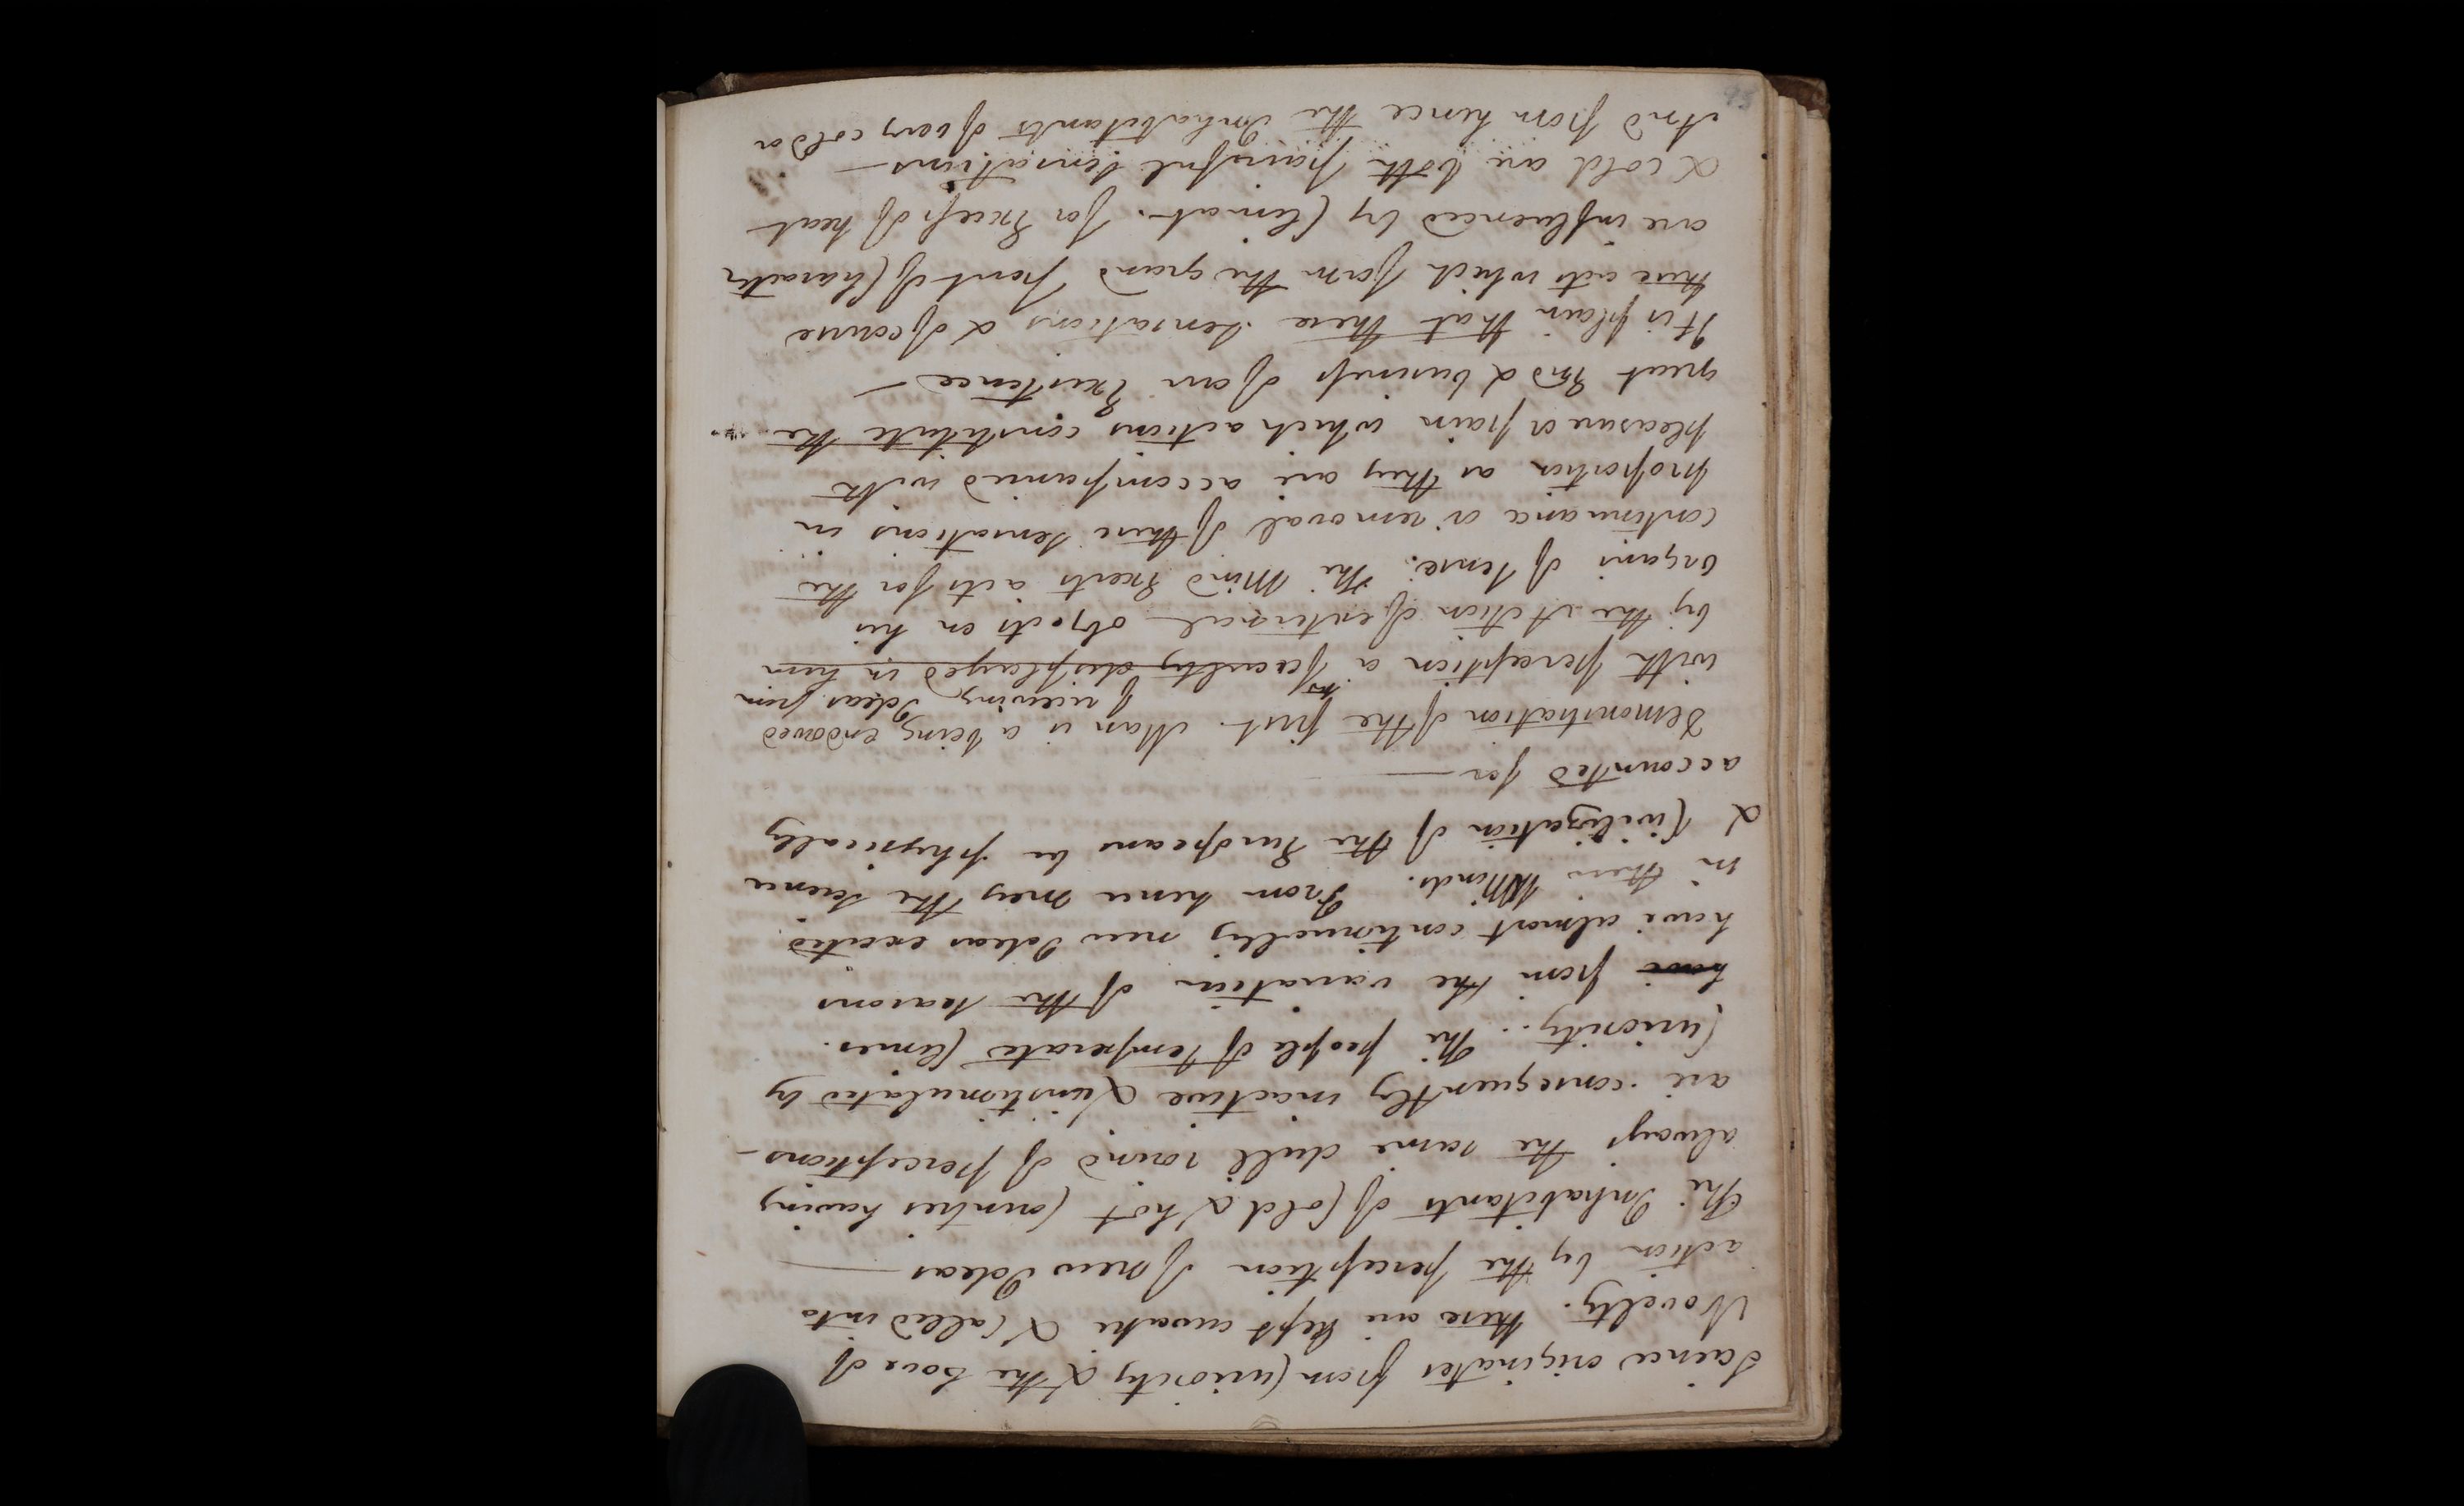 Science originates from Curiosity & the Love of
Novelty. these are kept awake & Called into
action by the perception of new Ideas ——
The Inhabitants of Cold & hot Countries having
always the same dull round of perceptions –
are consequently inactive & unstimulated by
Curiosity. The people of temperate Climes.
have from the variation of the seasons
have almost continually new Ideas excited
in their Minds. From hence may the Science
& Civilization of the Europeans be physically
accounted for ——
Demonstration of the first. Man is a being endowed
of receiving Ideas from
with perception a faculty displayed in him
by the Action of external objects on his
organs of sense. The Mind Exerts acts for the
continuance or removal of these sensations in
proportion as they are accompanied with
pleasure or pain which actions constitute the
great End & business of our Existence –
It is plain that these sensations & of course
these acts which form the grand part of Character
are influenced by Climate. for Excess of heat
& cold are both painful sensations –
And from hence the Inhabitants of very cold or
95